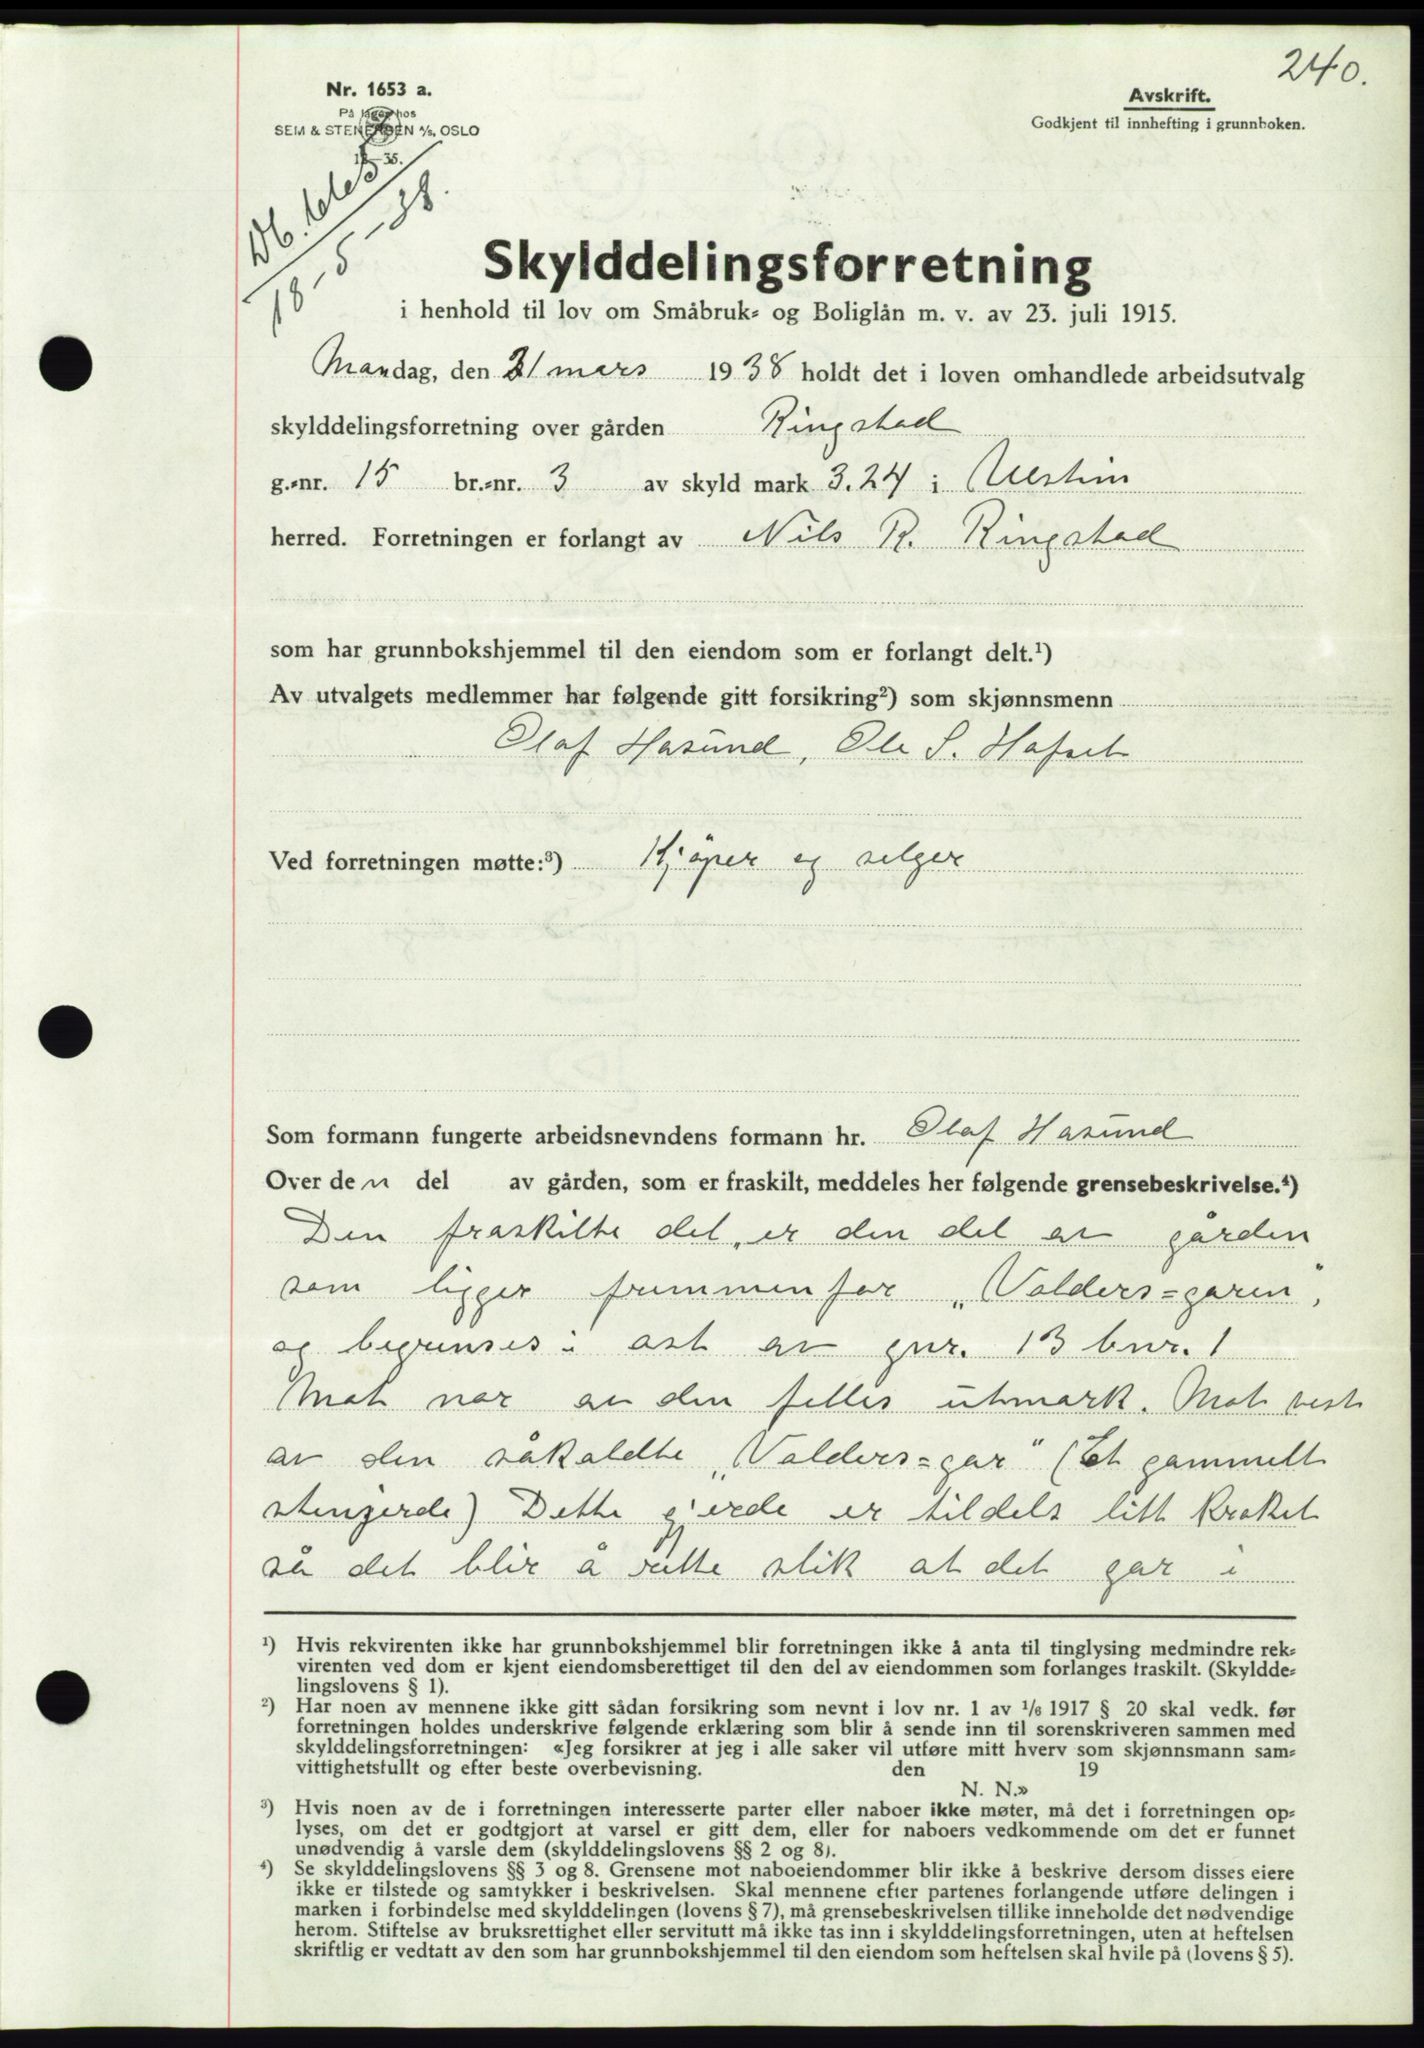 240.
Nr. 1653 a.
På lager hos
SEM & STENERSEN A/S, OSLO
12-35.
Avskrift.
Godkjent til innhefting i grunnboken.
Db.
18-5-38.
Skylddelingsforretning
i henhold til lov om Småbruk- og Boliglån m. v. av 23. juli 1915.
Mandag, den 21 mars 1938 holdt det i loven omhandlede arbeidsutvalg
skylddelingsforretning over gården Ringstad
g.-nr. 15 br.-nr. 3 av skyld mark 3.24 i Ulstein
herred. Forretningen er forlangt av Nils R. Ringstad
som har grunnbokshjemmel til den eiendom som er forlangt delt.¹)
Av utvalgets medlemmer har følgende gitt forsikring²) som skjønnsmenn
Olaf Hasund, Ole S. Hafset
Ved forretningen møtte:³) Kjöper og selger
Som formann fungerte arbeidsnevndens formann hr. Olaf Hasund
Over den del av gården, som er fraskilt, meddeles her følgende grensebeskrivelse.⁴)
Den fraskilte del, er den del av gården
som ligger frammenfor „Valders=garen",
og begrenses i ost av gnr. 13 bnr. 1
Mot nor av den felles utmark. Mot vest
av den såkaldte „Valders=gar" (Et gammelt
stengjerde) Dette gjerde er tildels litt kroket
så det blir å rette slik at det gar i
¹) Hvis rekvirenten ikke har grunnbokshjemmel blir forretningen ikke å anta til tinglysing medmindre rek-
virenten ved dom er kjent eiendomsberettiget til den del av eiendommen som forlanges fraskilt. (Skyldde-
lingslovens § 1).
²) Har noen av mennene ikke gitt sådan forsikring som nevnt i lov nr. 1 av 1/6 1917 § 20 skal vedk. før
forretningen holdes underskrive følgende erklæring som blir å sende inn til sorenskriveren sammen med
skylddelingsforretningen: «Jeg forsikrer at jeg i alle saker vil utføre mitt hverv som skjønnsmann sam-
vittighetsfullt og efter beste overbevisning. den 19
N. N.»
³) Hvis noen av de i forretningen interesserte parter eller naboer ikke møter, må det i forretningen op-
lyses, om det er godtgjort at varsel er gitt dem, eller for naboers vedkommende om det er funnet
unødvendig å varsle dem (skylddelingslovens §§ 2 og 8).
⁴) Se skylddelingslovens §§ 3 og 8. Grensene mot naboeiendommer blir ikke å beskrive dersom disses eiere
ikke er tilstede og samtykker i beskrivelsen. Skal mennene efter partenes forlangende utføre delingen i
marken i forbindelse med skylddelingen (lovens § 7), må grensebeskrivelsen tillike inneholde det nødvendige
herom. Stiftelse av bruksrettighet eller servitutt må ikke tas inn i skylddelingsforretningen, uten at heftelsen
skriftlig er vedtatt av den som har grunnbokshjemmel til den eiendom som heftelsen skal hvile på (lovens § 5).